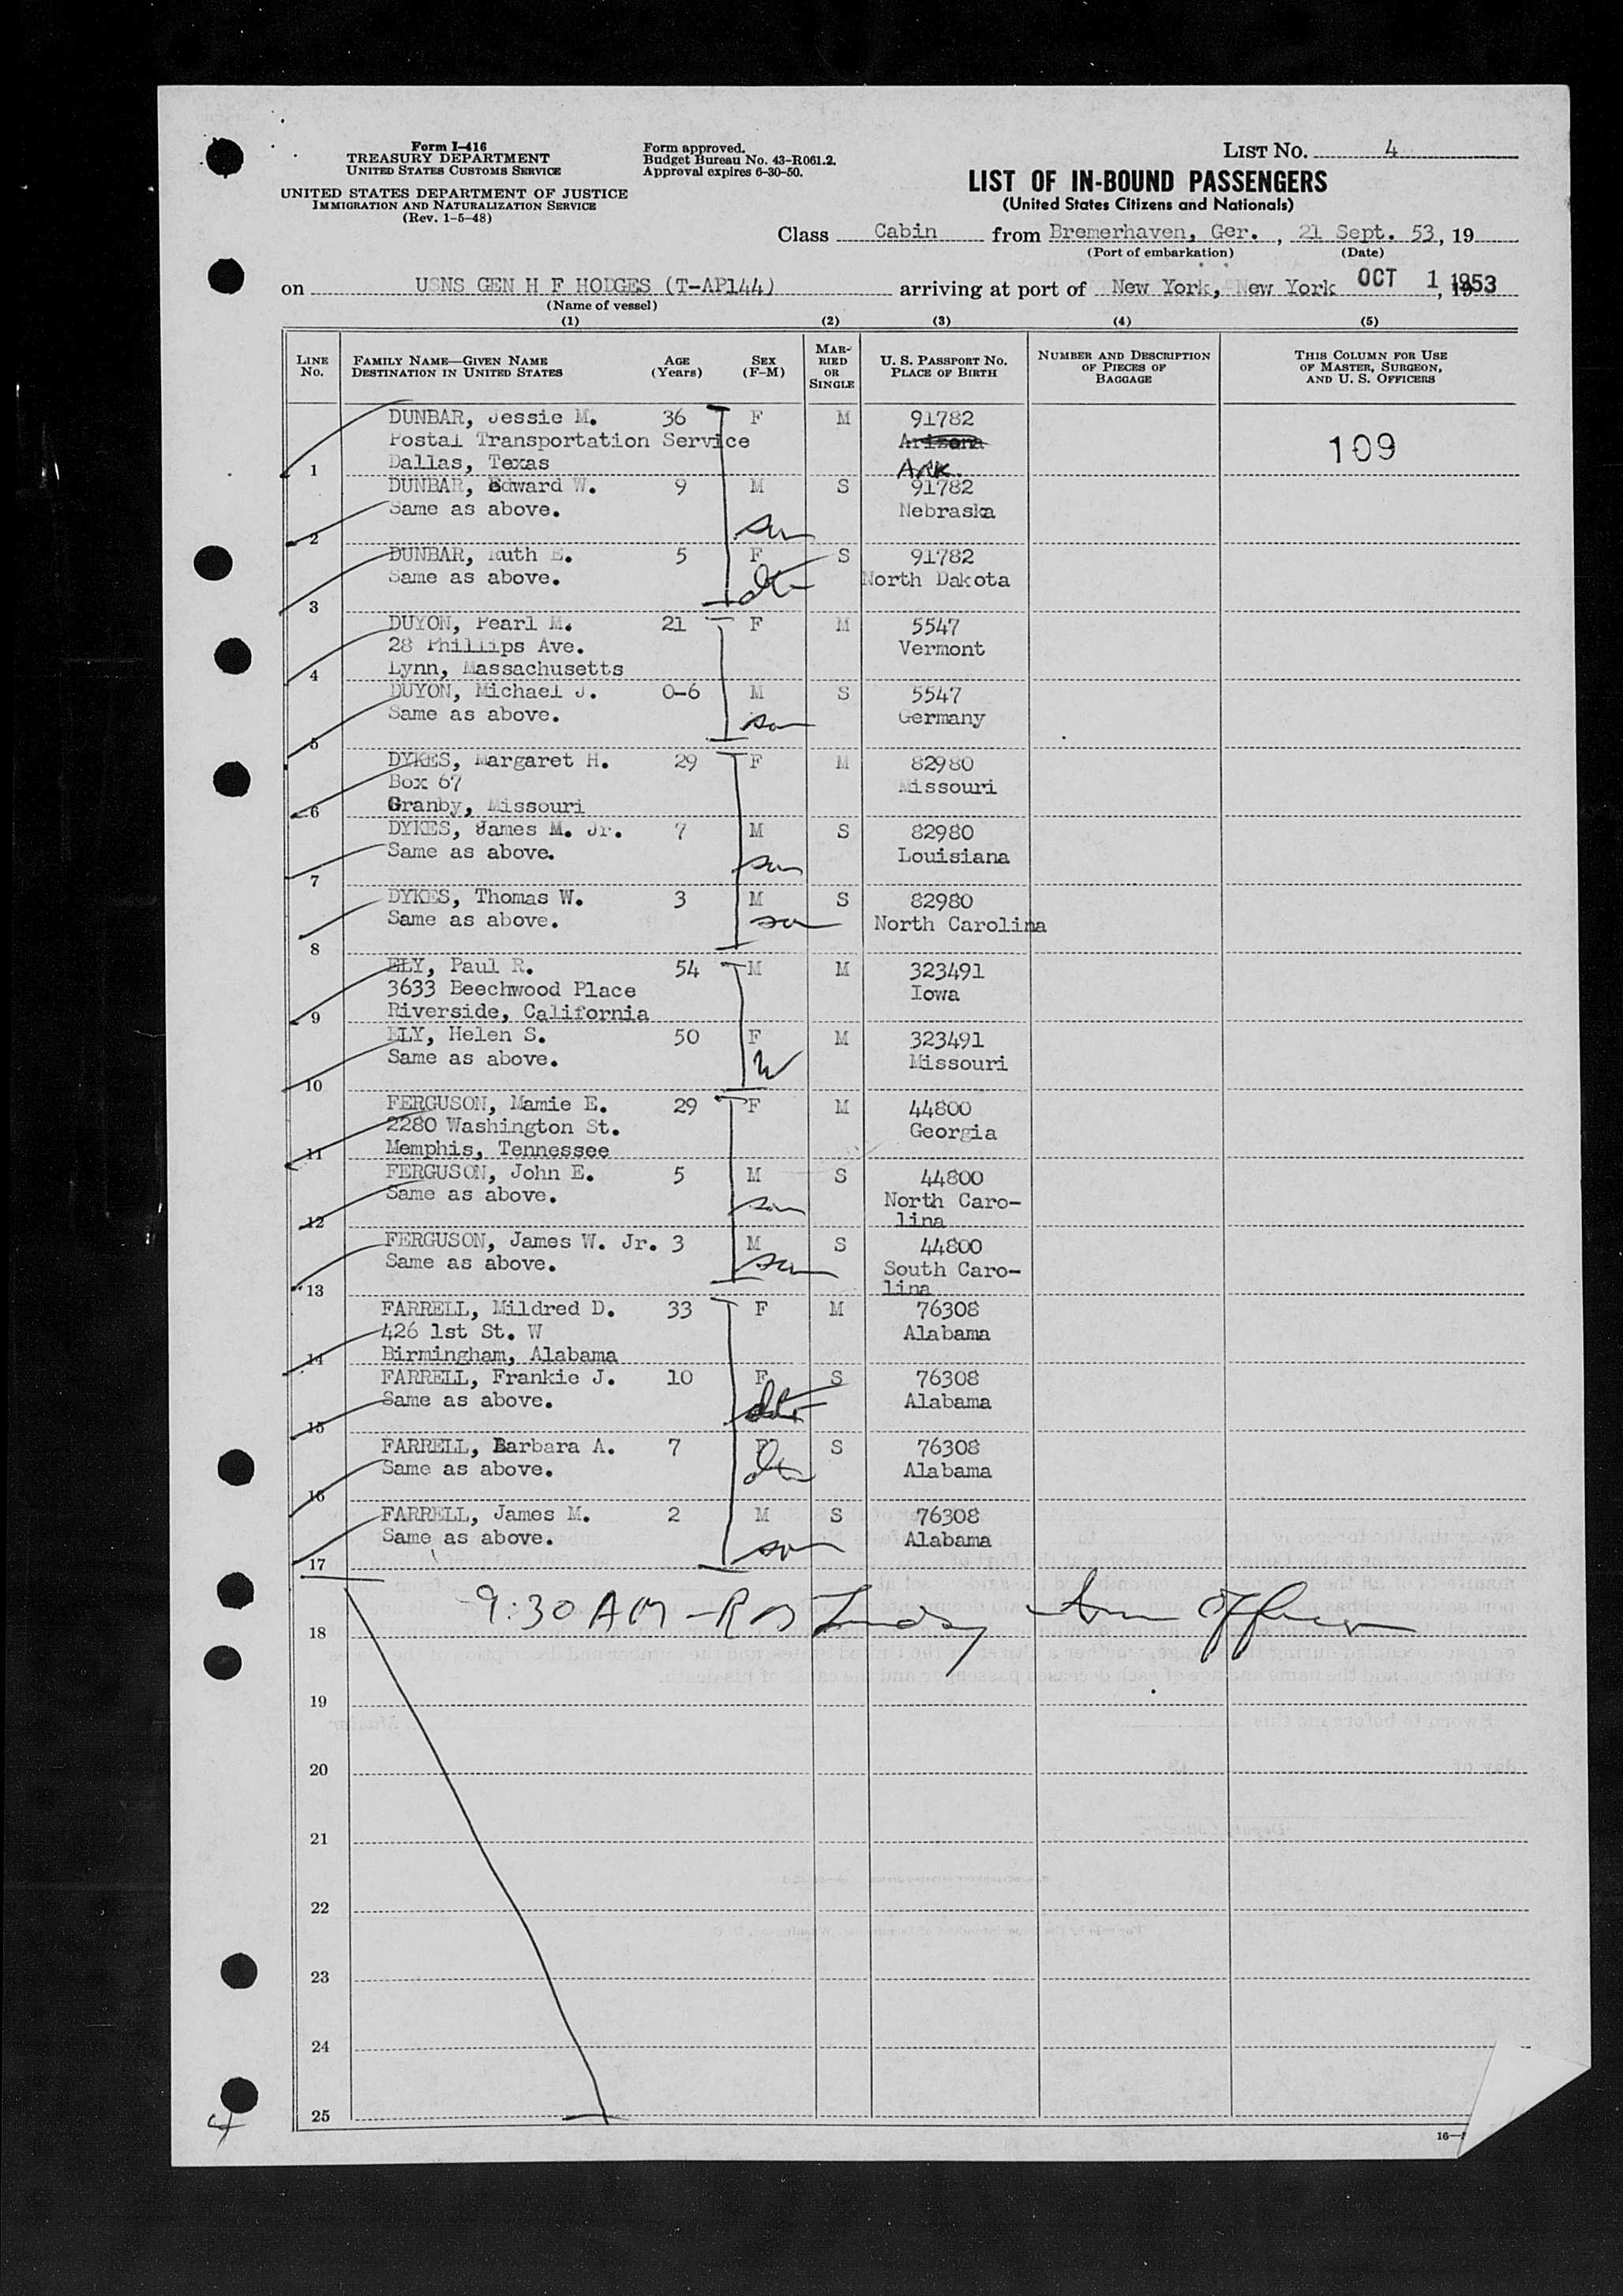 Form I-416
TREASURY DEPARTMENT
UNITED STATES CUSTOMS SERVICE
UNITED STATES DEPARTMENT OF JUSTICE
IMMIGRATION AND NATURALIZATION SERVICE
(Rev. 1-5-48)
Form approved.
Budget Bureau No. 43-R061.2.
Approval expires 6-30-50.
LIST NO. 4
LIST OF IN-BOUND PASSENGERS
(United States Citizens and Nationals)
Class Cabin from Bremerhaven, Ger., 21 Sept. 53, 19
(Port of embarkation) (Date)
on USNS GEN H F HODGES (T-AP144) arriving at port of New York, New York OCT 1 1953
(Name of vessel)
(1) (2) (3) (4) (5)
LINE No. FAMILY NAME—GIVEN NAME DESTINATION IN UNITED STATES AGE (Years) SEX (F-M) MARRIED OR SINGLE U. S. PASSPORT NO. PLACE OF BIRTH NUMBER AND DESCRIPTION OF PIECES OF BAGGAGE THIS COLUMN FOR USE OF MASTER, SURGEON, AND U. S. OFFICERS
DUNBAR, Jessie M. 36 F M 91782
Postal Transportation Service Arizona 109
1 Dallas, Texas Ark.
DUNBAR, Edward W. 9 M S 91782
Same as above. Nebraska
2 son
DUNBAR, Ruth E. 5 F S 91782
Same as above. dtr North Dakota
3
DUYON, Pearl M. 21 F M 5547
28 Phillips Ave. Vermont
4 Lynn, Massachusetts
DUYON, Michael J. 0-6 M S 5547
Same as above. son Germany
5
DYKES, Margaret H. 29 F M 82980
Box 67 Missouri
6 Granby, Missouri
DYKES, James M. Jr. 7 M S 82980
Same as above. son Louisiana
7
DYKES, Thomas W. 3 M S 82980
Same as above. son North Carolina
8
ELY, Paul R. 54 M M 323491
3633 Beechwood Place Iowa
9 Riverside, California
ELY, Helen S. 50 F M 323491
Same as above. W Missouri
10
FERGUSON, Mamie E. 29 F M 44800
2280 Washington St. Georgia
11 Memphis, Tennessee
FERGUSON, John E. 5 M S 44800
Same as above. son North Caro-
12 lina
FERGUSON, James W. Jr. 3 M S 44800
Same as above. son South Caro-
13 lina
FARRELL, Mildred D. 33 F M 76308
426 1st St. W Alabama
14 Birmingham, Alabama
FARRELL, Frankie J. 10 F S 76308
Same as above. dtr Alabama
15
FARRELL, Barbara A. 7 F S 76308
Same as above. dtr Alabama
16
FARRELL, James M. 2 M S 76308
Same as above. son Alabama
17
18 9:30 AM - R Officer
19
20
21
22
23
24
25
4
16—